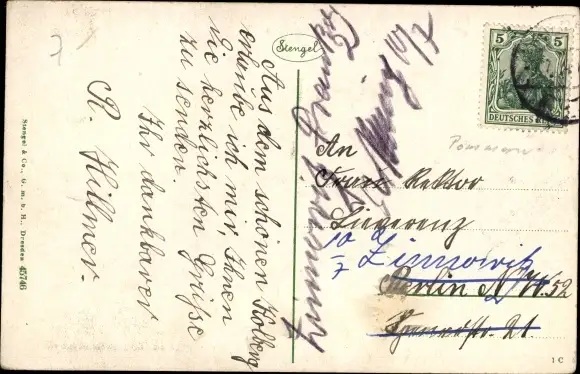 Stengel
Aus dem schönen Kolberg
erlaube ich mir, Ihnen
die herzlichsten Grüße
zu senden.
Ihr dankbarer
R. Hillmer.
Stengel & Co., G. m. b. H., Dresden 45746
5 5
DEUTSCHES REICH
Pommern
An
Rektor
Lieverenz
10/7
Zinnowitz
Berlin N.W. 52
21
1 C